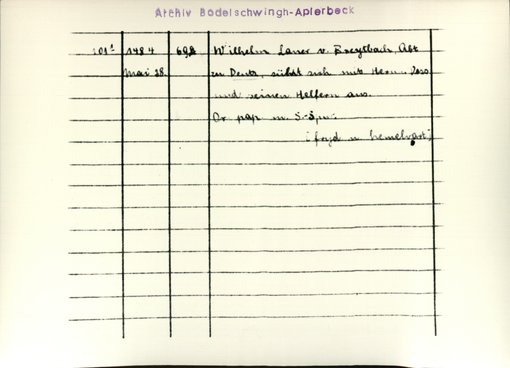 Archiv Bodelschwingh-Apferbeck
101¹ 1484 692 Wilhelm Lauer v. Breytbach, Abt
Mai 28. zu Deutz, söhnt sich mit Herm. v.
und seinen Helfern aus.
Or. pap. m. S.-Spur.